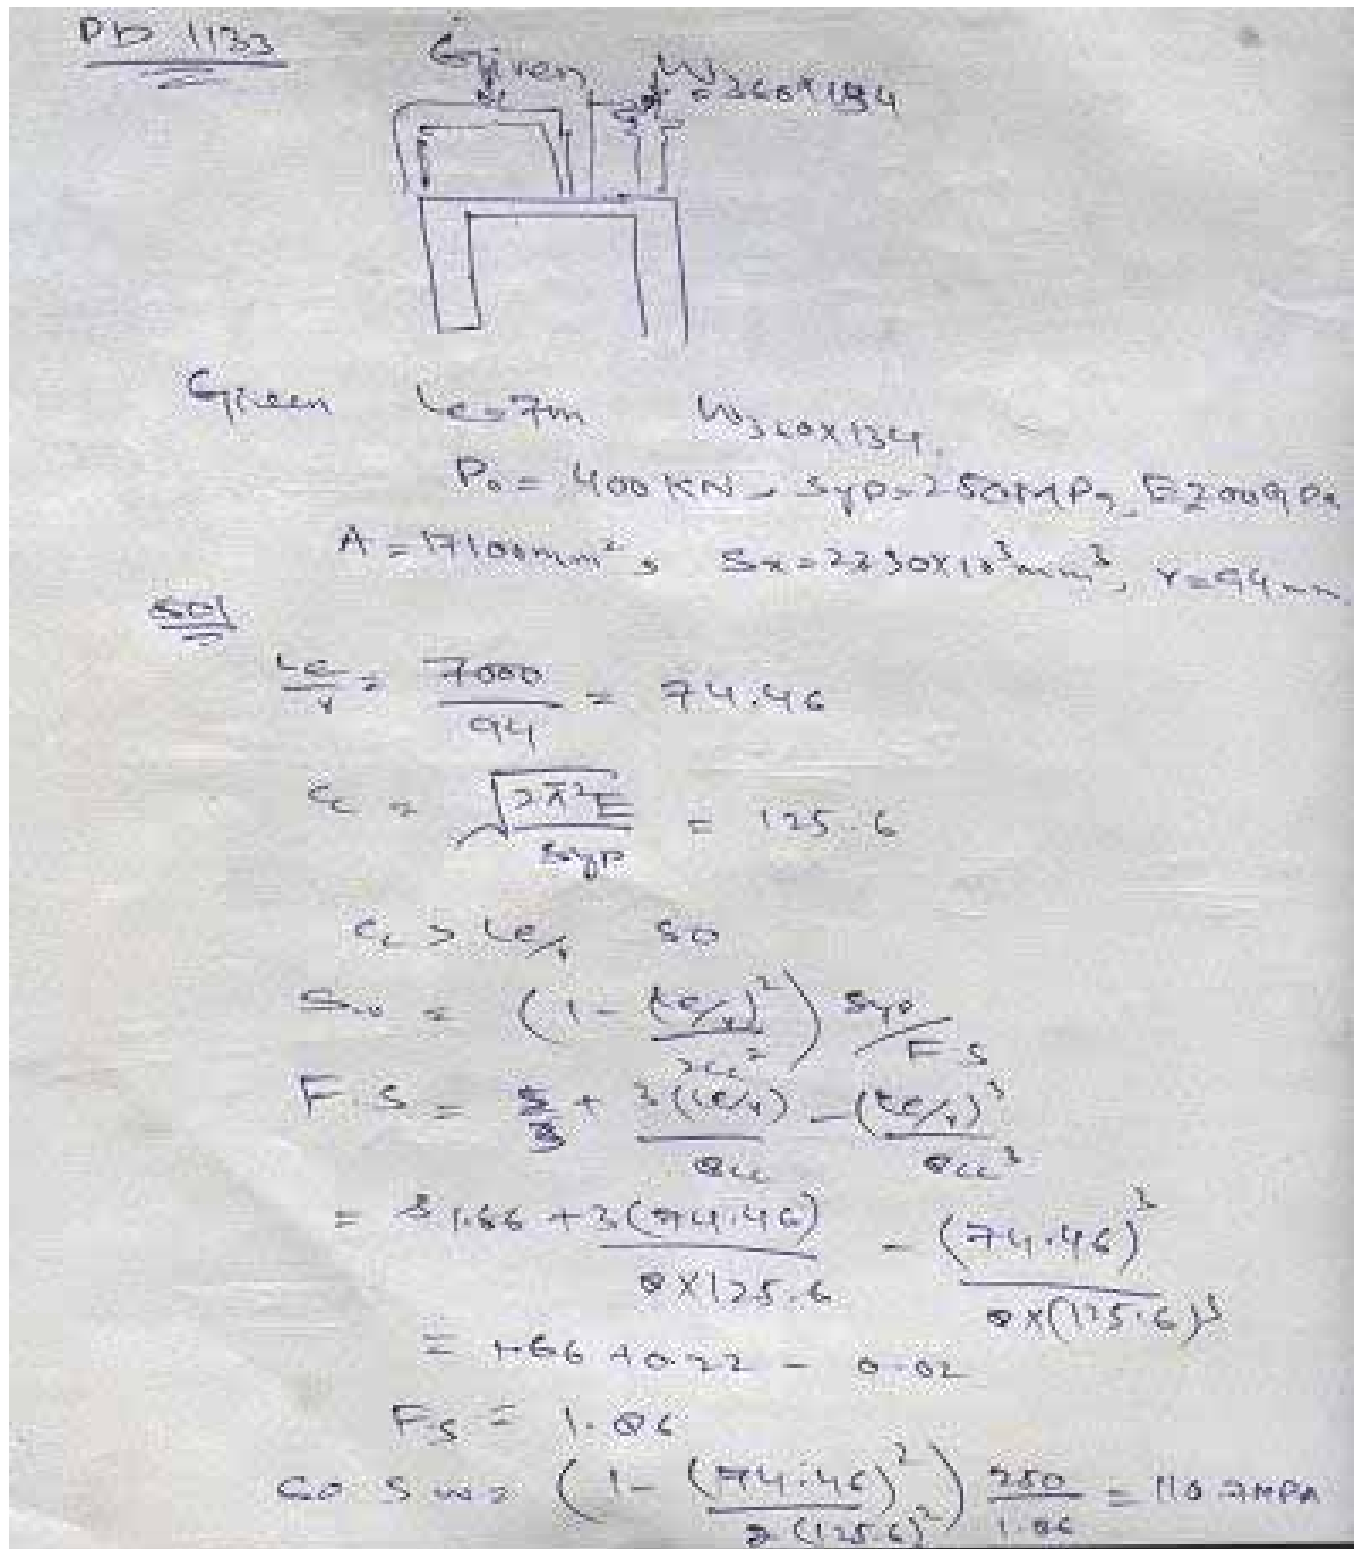 Pb 1133
Given W360x134
Given Le=7m W360x134
P0 = 400 KN, Syp=250MPa, E=200GPa
A=17100mm², Sx=2230x10³mm³, r=94mm
Sol
Le/r = 7000/94 = 74.46
Cc = √(2π²E/Syp) = 125.6
Cc > Le/r so
Sw = (1 - (Le/r)²/2Cc²) Syp/F.S
F.S = 5/3 + 3(Le/r)/8Cc - (Le/r)³/8Cc³
= 1.66 + 3(74.46)/8x125.6 - (74.46)³/8x(125.6)³
= 1.66 + 0.22 - 0.02
F.S = 1.86
So Sw = (1 - (74.46)²/2(125.6)²) 250/1.86 = 110.7MPa